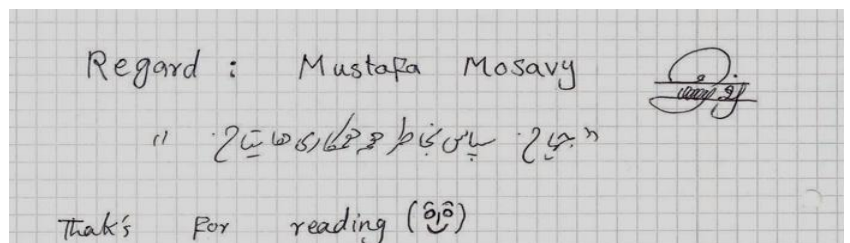 Regard : Mustafa Mosavy
سپاس بخاطر همکاری
Thak's For reading